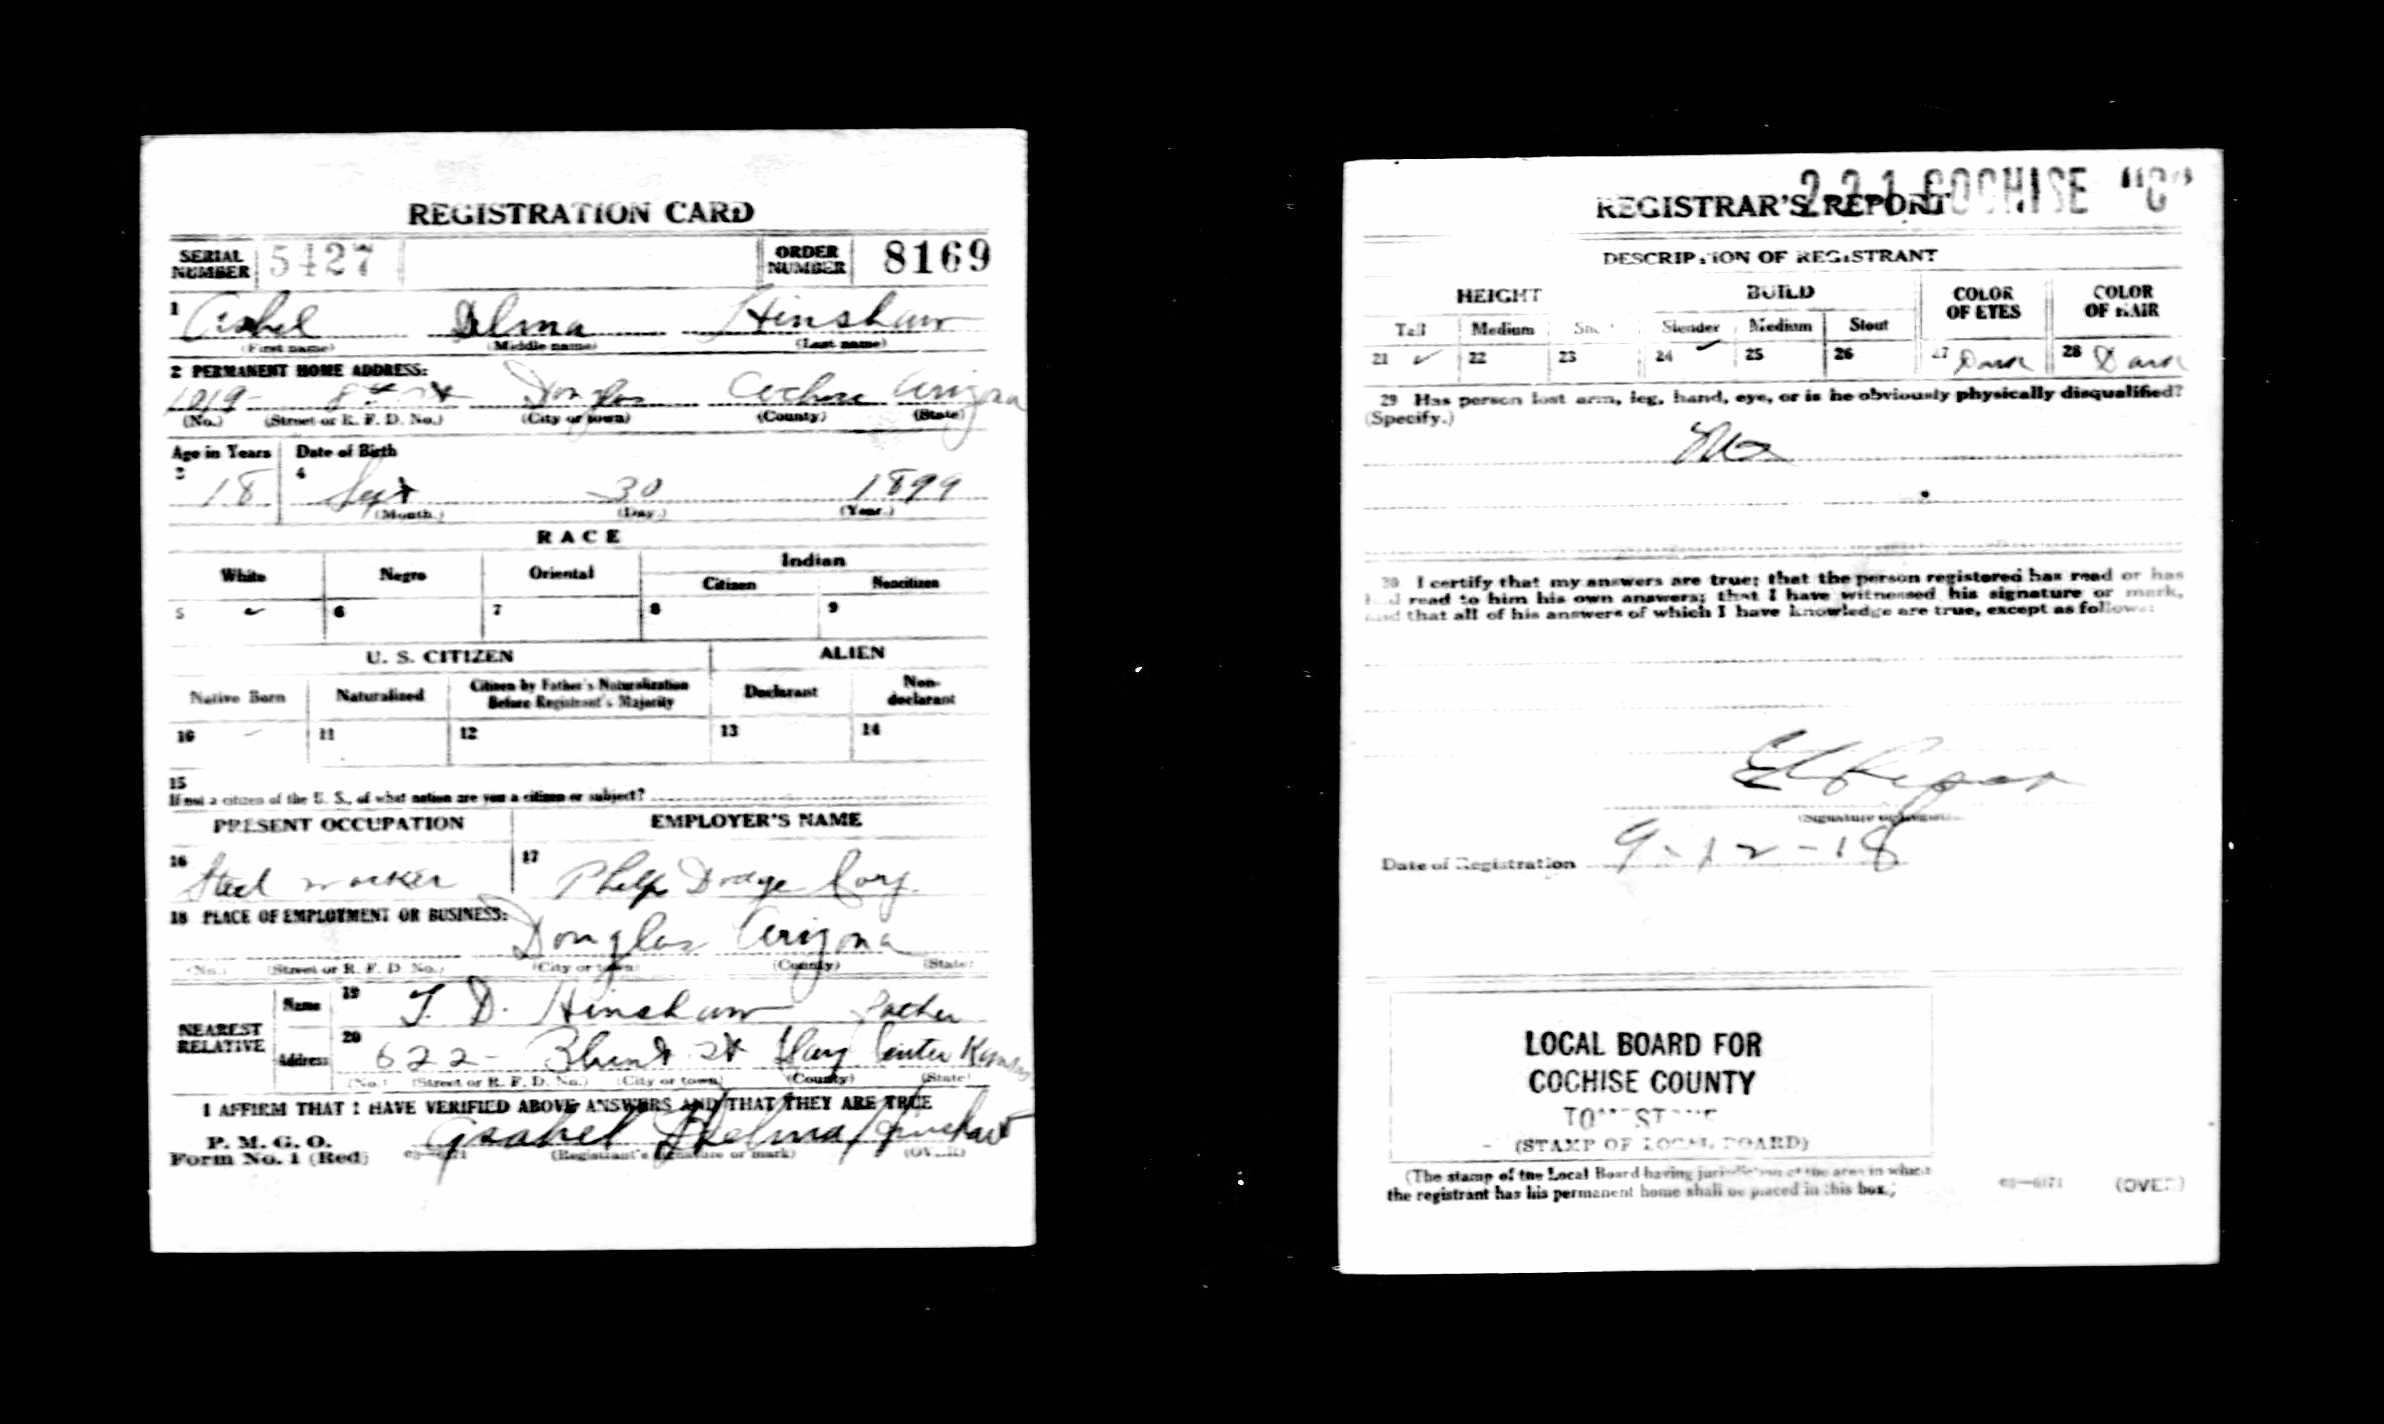 REGISTRATION CARD
SERIAL NUMBER 5427 ORDER NUMBER 8169
1 Hinshaw
(First name) (Middle name) (Last name)
2 PERMANENT HOME ADDRESS:
1019- 8th St Douglas Cochise Arizona
(No.) (Street or R. F. D. No.) (City or town) (County) (State)
Age in Years Date of Birth
3 18 4 Sept 30 1899
(Month.) (Day.) (Year.)
RACE
White Negro Oriental Indian
Citizen Noncitizen
5 ✓ 6 7 8 9
U. S. CITIZEN ALIEN
Native Born Naturalized Citizen by Father's Naturalization Before Registrant's Majority Declarant Non-declarant
10 ✓ 11 12 13 14
15
If not a citizen of the U. S., of what nation are you a citizen or subject?
PRESENT OCCUPATION EMPLOYER'S NAME
16 Steel worker 17 Phelps Dodge Corp.
18 PLACE OF EMPLOYMENT OR BUSINESS:
Douglas Arizona
(No.) (Street or R. F. D. No.) (City or town) (County) (State)
NEAREST RELATIVE
Name 19 T. D. Hinshaw Father
Address 20 622- St Clay Center Kansas
(No.) (Street or R. F. D. No.) (City or town) (County) (State)
I AFFIRM THAT I HAVE VERIFIED ABOVE ANSWERS AND THAT THEY ARE TRUE
P. M. G. O.
Form No. 1 (Red) Asahel Delma Hinshaw
(Registrant's signature or mark) (OVER)
221 COCHISE "C"
REGISTRAR'S REPORT
DESCRIPTION OF REGISTRANT
HEIGHT BUILD COLOR OF EYES COLOR OF HAIR
Tall Medium Short Slender Medium Stout
21 ✓ 22 23 24 ✓ 25 26 27 Dark 28 Dark
29 Has person lost arm, leg, hand, eye, or is he obviously physically disqualified?
(Specify.)
No
30 I certify that my answers are true; that the person registered has read or has
had read to him his own answers; that I have witnessed his signature or mark,
and that all of his answers of which I have knowledge are true, except as follows:
(Signature of Registrar)
Date of Registration 9-12-18
LOCAL BOARD FOR
COCHISE COUNTY
TOMBSTONE
(STAMP OF LOCAL BOARD)
(The stamp of the Local Board having jurisdiction of the area in which
the registrant has his permanent home shall be placed in this box.)
03—6171 (OVER)